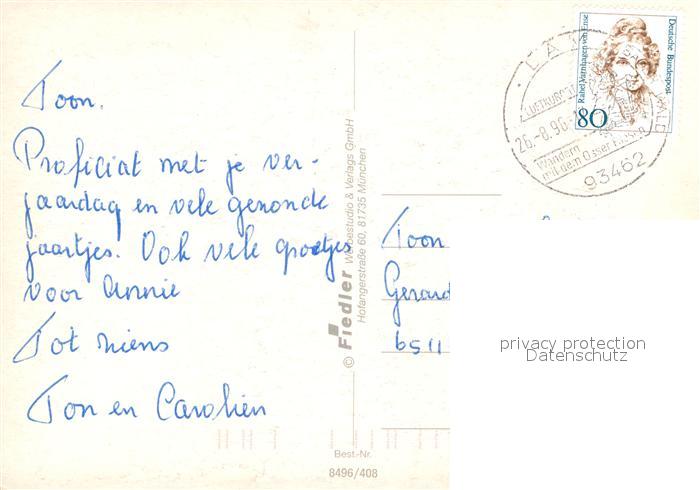 Toon.
Proficiat met je ver-
jaardag en vele gezonde
jaartjes. Ook vele groetjes
voor Annie
Tot ziens
Ton en Carolien
© Fiedler Werbestudio & Verlags GmbH
Hofangerstraße 60, 81735 München
Best.-Nr.
8496/408
Deutsche Bundespost
Rahel Varnhagen von Ense
80
LUFTKURORT
26.-8.96
WALD
Wandern
mit dem Osser
93462
Toon
Gerard
6511
privacy protection
Datenschutz